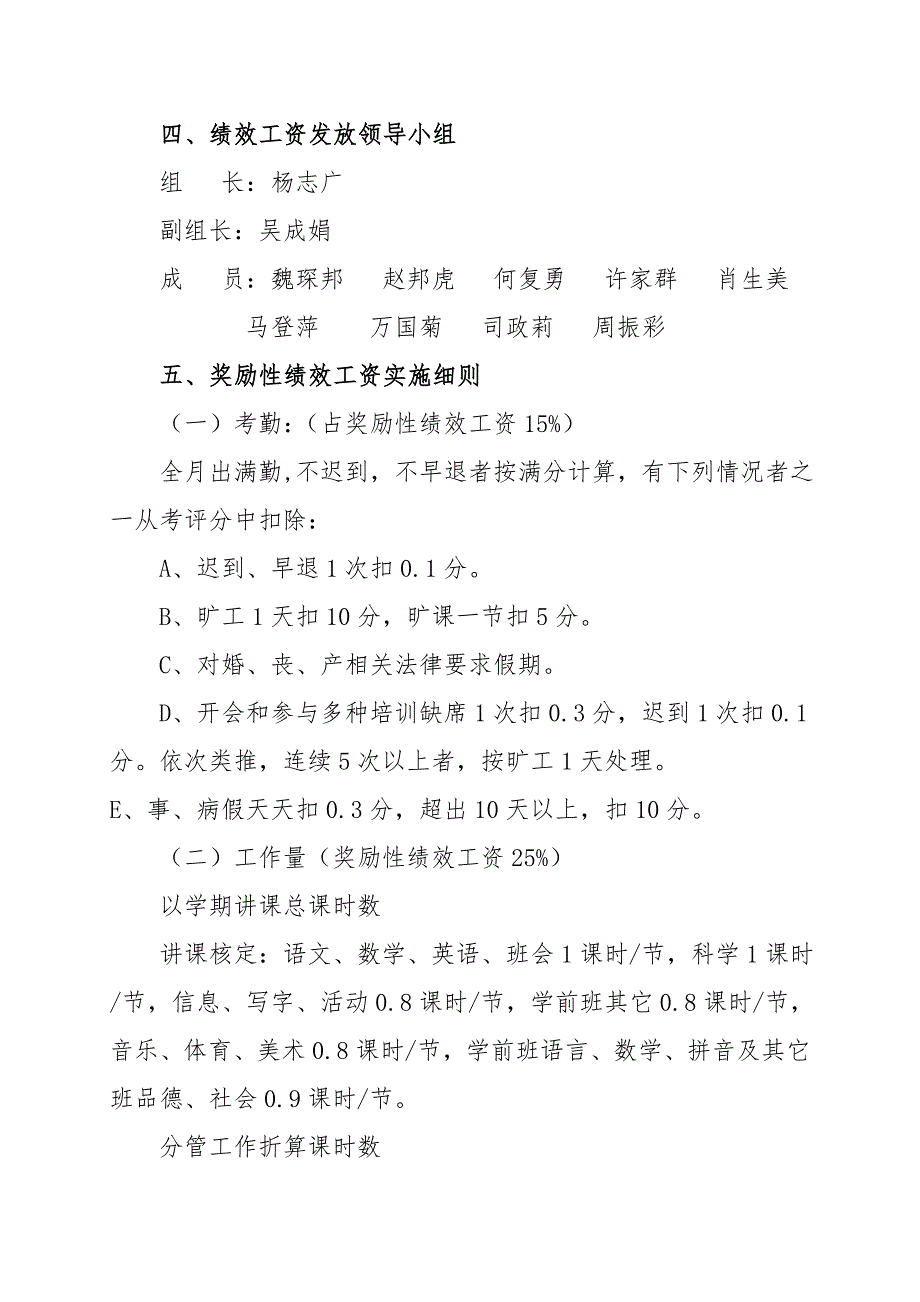 四、绩效工资发放领导小组
组 长：杨志广
副组长：吴成娟
成 员：魏琛邦 赵邦虎 何复勇 许家群 肖生美
马登萍 万国菊 司政莉 周振彩
五、奖励性绩效工资实施细则
（一）考勤：（占奖励性绩效工资15%）
全月出满勤,不迟到，不早退者按满分计算，有下列情况者之
一从考评分中扣除：
A、迟到、早退1次扣0.1分。
B、旷工1天扣10分，旷课一节扣5分。
C、对婚、丧、产相关法律要求假期。
D、开会和参与多种培训缺席1次扣0.3分，迟到1次扣0.1
分。依次类推，连续5次以上者，按旷工1天处理。
E、事、病假天天扣0.3分，超出10天以上，扣10分。
（二）工作量（奖励性绩效工资25%）
以学期讲课总课时数
讲课核定：语文、数学、英语、班会1课时/节，科学1课时
/节，信息、写字、活动0.8课时/节，学前班其它0.8课时/节，
音乐、体育、美术0.8课时/节，学前班语言、数学、拼音及其它
班品德、社会0.9课时/节。
分管工作折算课时数